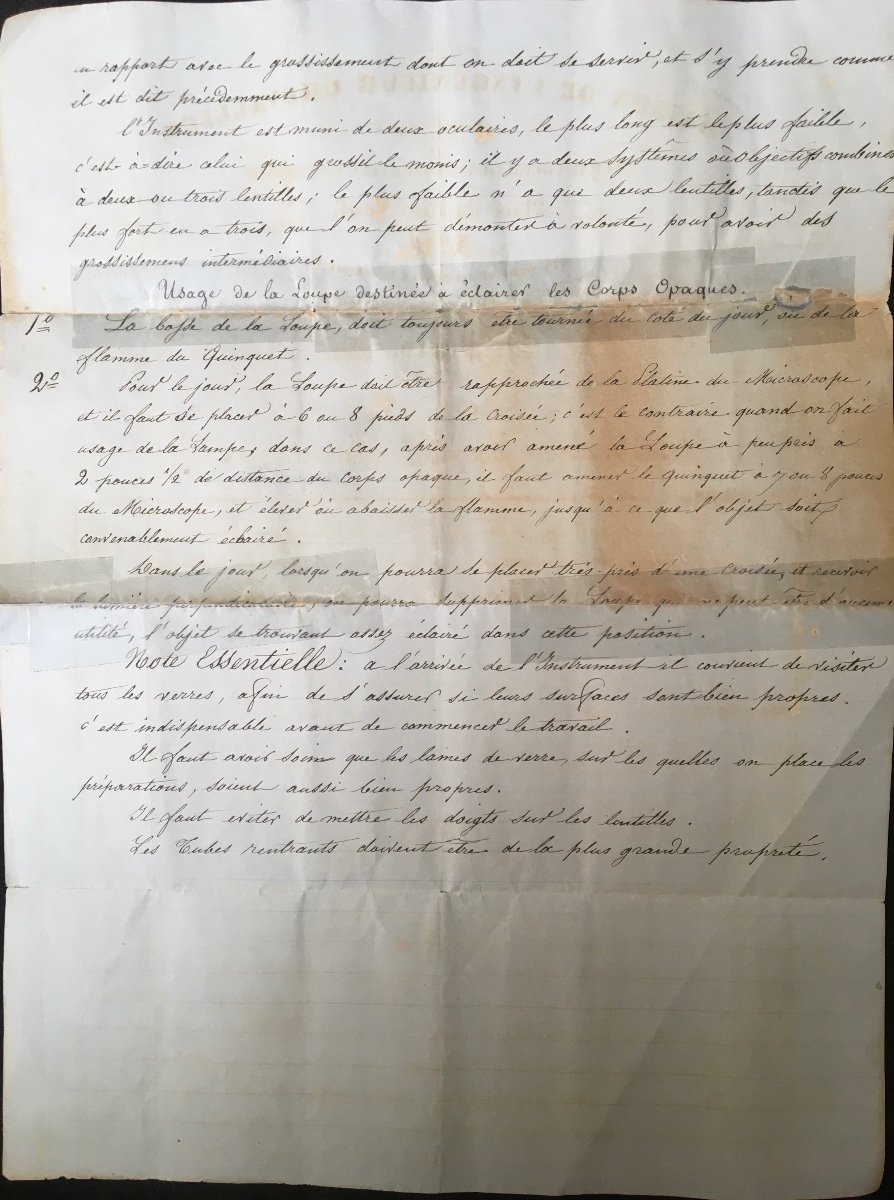 en rapport avec le grossissement dont on doit se servir, et s'y prendre comme
il est dit précédemment.
l'Instrument est muni de deux oculaires, le plus long est le plus faible,
c'est-à-dire celui qui grossit le moins; il y a deux systêmes ou objectifs combinés
à deux ou trois lentilles; le plus faible n'a que deux lentilles, tandis que le
plus fort en a trois, que l'on peut démonter à volonté, pour avoir des
grossissemens intermédiaires.
Usage de la Loupe destinée à éclairer les Corps Opaques.
1º La bosse de la Loupe, doit toujours être tournée du coté du jour, ou de la
flamme du Quinquet.
2º Pour le jour, la Loupe doit être rapprochée de la Platine du Microscope,
et il faut se placer à 6 ou 8 pieds de la croisée; c'est le contraire quand on fait
usage de la Lampe, dans ce cas, après avoir amené la Loupe à peu près à
2 pouces 1/2 de distance du corps opaque, il faut amener le quinquet à 7 ou 8 pouces
du Microscope, et élever ou abaisser la flamme, jusqu'à ce que l'objet soit
convenablement éclairé.
Dans le jour, lorsqu'on pourra se placer très-près d'une croisée, et recevoir
la lumière perpendiculaire, on pourra supprimer la Loupe qui ne peut être d'aucune
utilité, l'objet se trouvant assez éclairé dans cette position.
Note Essentielle: a l'arrivée de l'Instrument il convient de visiter
tous les verres, afin de s'assurer si leurs surfaces sont bien propres.
c'est indispensable avant de commencer le travail.
Il faut avoir soin que les lames de verre, sur les quelles on place les
préparations, soient aussi bien propres.
Il faut eviter de mettre les doigts sur les lentilles.
Les Tubes rentrants doivent être de la plus grande propreté.